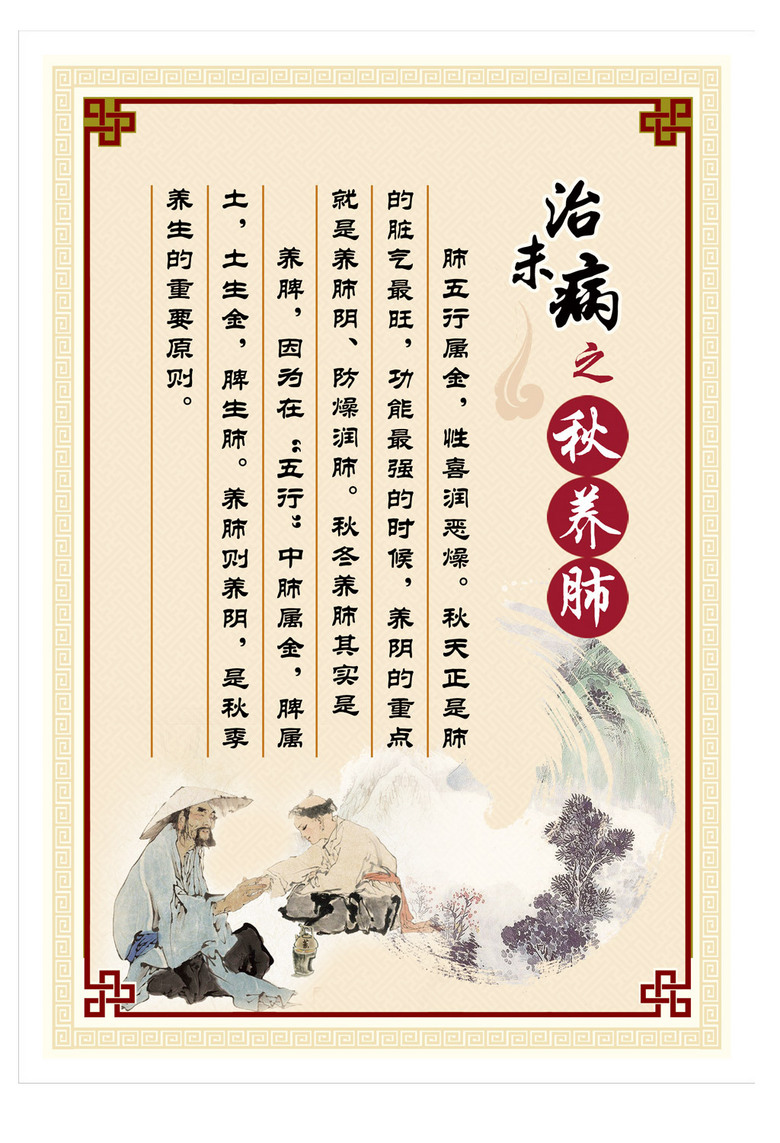 治未病之秋养肺
肺五行属金，性喜润恶燥。秋天正是肺
的脏气最旺，功能最强的时候，养阴的重点
就是养肺阴、防燥润肺。秋冬养肺其实是
养脾，因为在“五行”中肺属金，脾属
土，土生金，脾生肺。养肺则养阴，是秋季
养生的重要原则。